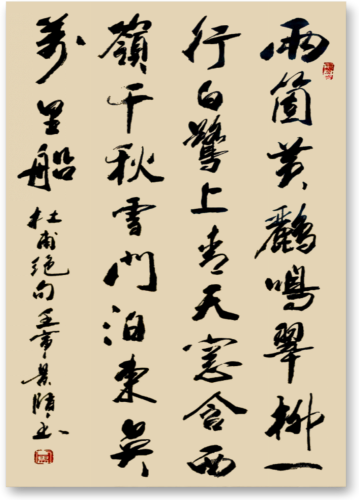 兩箇黃鸝鳴翠柳一
行白鷺上青天窓含西
嶺千秋雪門泊東吳
萬里船 杜甫绝句